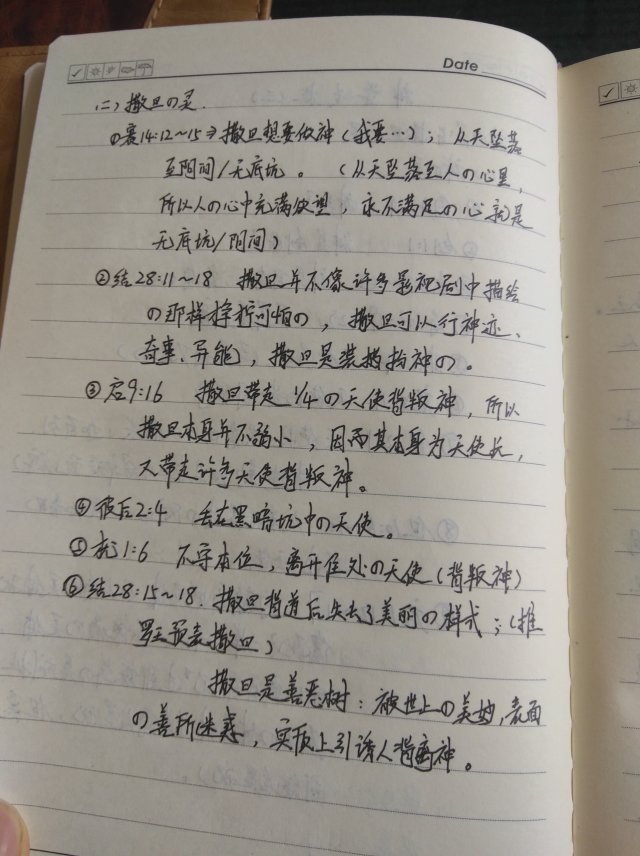 Date
(二)撒旦の灵.
①赛14:12~15⇒撒旦想要做神(我要…);从天坠落
至阴间/无底坑。(从天坠落至人の心里,
所以人の心中充满欲望,永不满足の心就是
无底坑/阴间)
②结28:11~18 撒旦并不像许多影视剧中描绘
の那样狰狞可怕の,撒旦可以行神迹、
奇事、异能,撒旦是装扮神の。
③启9:16 撒旦带走1/4の天使背叛神,所以
撒旦本身并不弱小,因而其本身为天使长,
又带走许多天使背叛神。
④彼后2:4 丢在黑暗坑中の天使。
⑤犹1:6 不守本位,离开住处の天使(背叛神)
⑥结28:15~18.撒旦背道后失去了美丽の样式;(推
罗王预表撒旦)
撒旦是善恶树:被世上の美好,表面
の善所迷惑,实质上引诱人背离神。